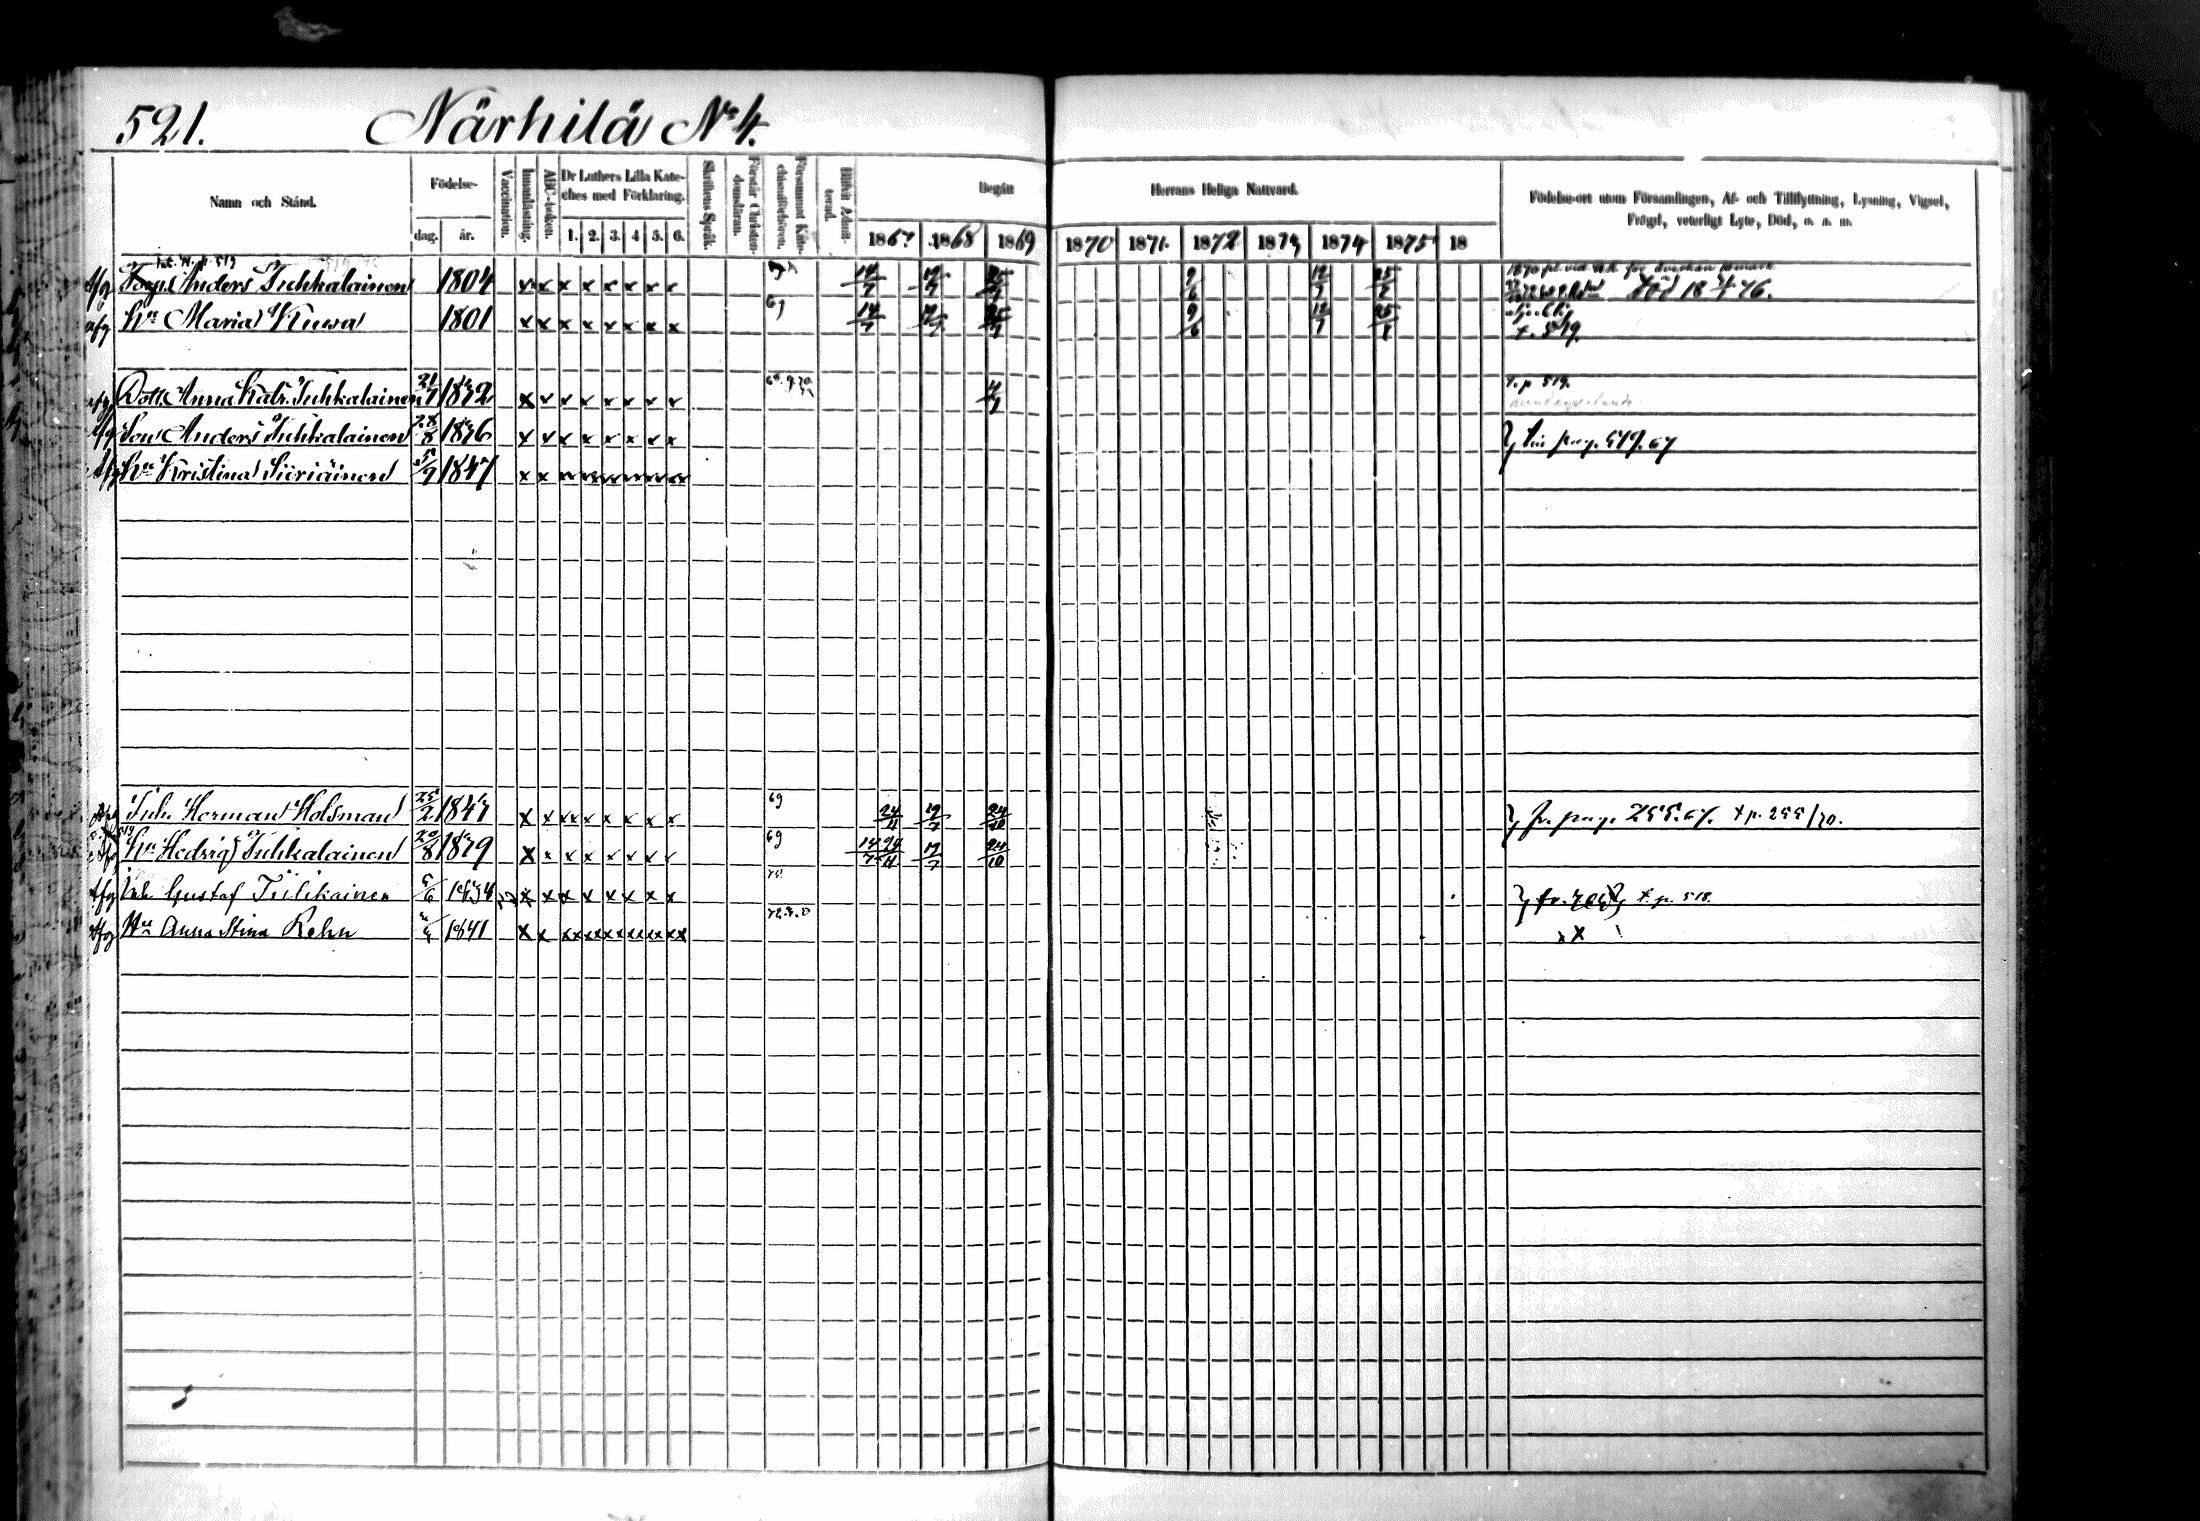 521. Närhilä No 4.
Namn och Stånd.
Födelse-
dag. år.
Vaccination.
Innanläsning.
ABC-boken.
Dr Luthers Lilla Kate-
ches med Förklaring.
1. 2. 3. 4 5. 6.
Skriftens Språk.
Förstår Christen-
domsläran.
Försummat Kate-
chesförhören.
Blifvit Admit-
terad.
Begått Herrans Heliga Nattvard.
1867 1868 1869 1870 1871. 1872 1873 1874 1875 18
Födelse-ort utom Församlingen, Af- och Tillflyttning, Lysning, Vigsel,
Frägd, veterligt Lyte, Död, m. m.
p. 519
Anders Tuhkalainen 1804 x x x x x x x x 14/7 12/7 9/6 12/7 25/7 Död 18 76.
Hu Maria Kuwa 1801 x x x x x x x x 69 14/7 9/6 12/7 25/7
t. 519.
Dott. Anna Katr. Tuhkalainen 1842 x x x x x x x x t. p. 519.
Son Anders Tuhkalainen 1846 x x x x x x x x pag. 519. 67
Hu Kristina Siiriäinen 1847 x x
Inh. Herman Holsman 25/2 1847 x x x x x x x x x 69 24/11 12/7 24/10 fr. pag. 255. 67. t p. 255/70.
Hu Hedvig Tuhkalainen 20/8 1849 x x x x x x x x 69 14/7 24/11 12/7 24/10
Inh. Gustaf Tiilikainen 1834 x x x x x x x x t. p. 518.
Hu Anna Stina Rehn 1841 x x xx xx xx xx xx xx
x X